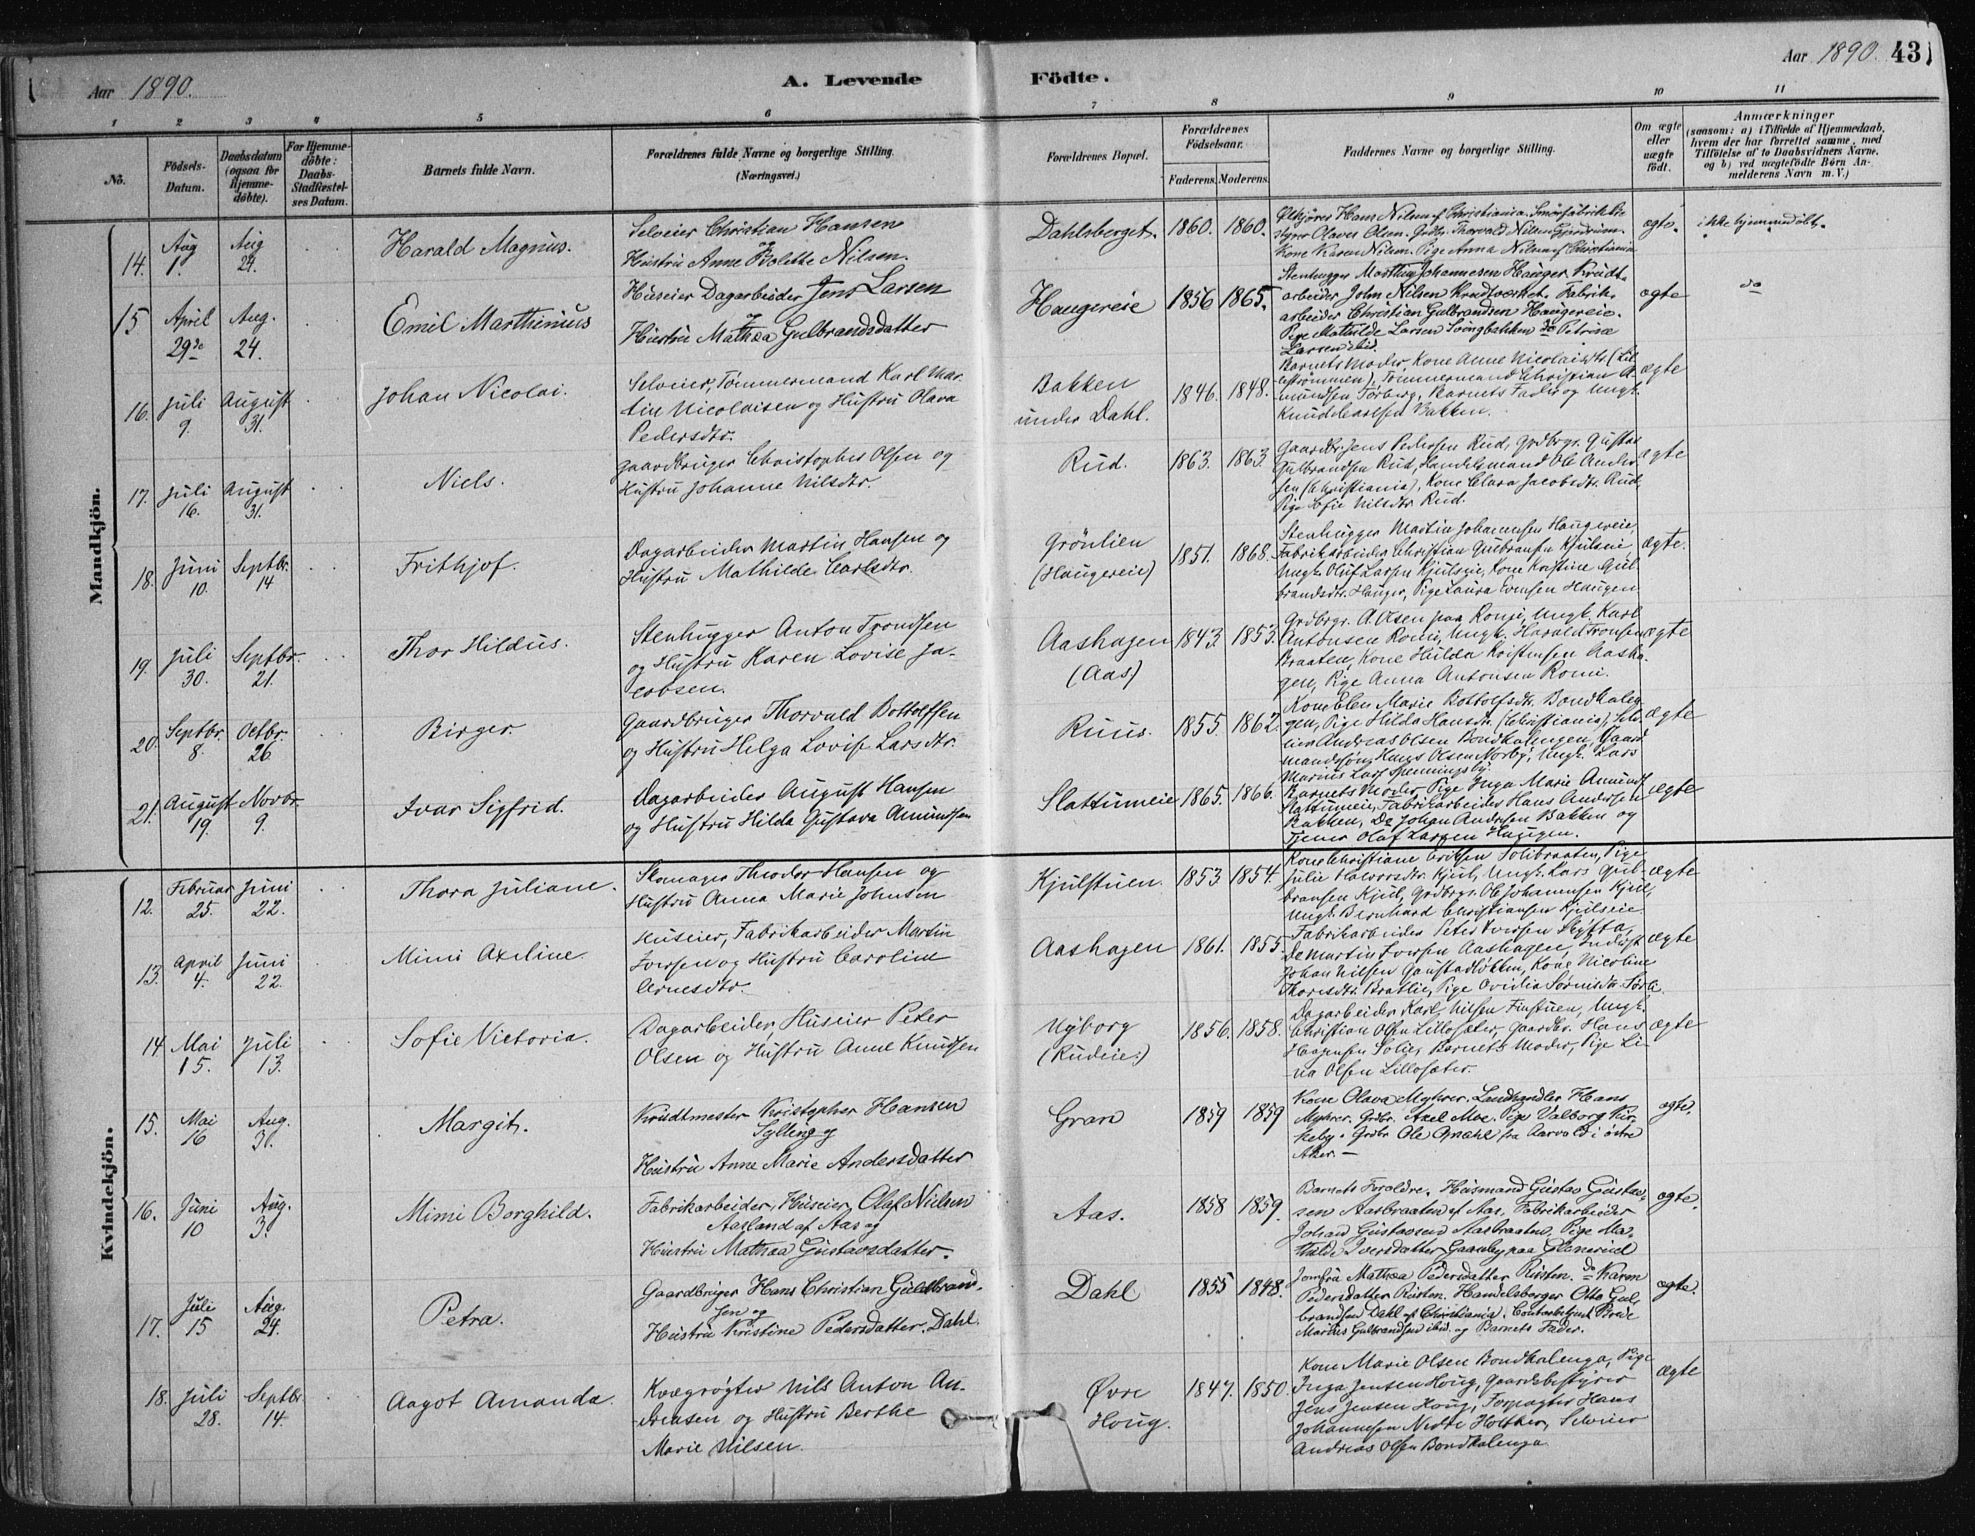 Aar 1890. A. Levende Födte. Aar 1890. 43
1 2 3 4 5 6 7 8 9 10 11
No.
Födsels-Datum.
Daabsdatum (ogsaa for Hjemme-döbte).
For Hjemme-döbte: Daabs-Stadfæstel-ses Datum.
Barnets fulde Navn.
Forældrenes fulde Navne og borgerlige Stilling.
(Næringsvei.)
Forældrenes Bopæl.
Forældrenes Födselsaar.
Faderens. Moderens.
Faddernes Navne og borgerlige Stilling.
Om ægte eller uægte födt.
Anmærkninger
(saasom: a) i Tilfælde af Hjemmedaab,
hvem der har forrettet samme, med
Tilföielse af to Daabsvidners Navne,
og b) ved uægtefödte Börn An-
melderens Navn m. V.)
Mandkjön.
14. Aug 1. Aug 24. Harald Magnus.
Selveier Christian Hansen
og
Hustru Anne Bolette Nilsen.
Dahlsberget. 1860. 1860.
Hans Nilsen af Christiania.
Olaves Olsen. Thorvald Nilsen
Kone Karen Nilsen. Pige Anna Nilsen af Christiania
ægte. ikke hjemmedöbt.
15 April 29de Aug. 24. Emil Marthinius
Huseier Dagarbeider Jens Larsen
og
Hustru Mathea Gulbrandsdatter
Haugereie 1856 1865.
Stenhugger Johannesen Hauger. Krudt-
arbeider John Nilsen Krudtværket. Fabrik-
arbeider Christian Gulbrandsen Haugereie.
Pige Mathilde Larsen do Petrine
Larsen ibid.
ægte do
16. Juli 9. August 31. Johan Nicolai.
Selveier, Tömmermand Karl Mar-
tin Nicolaisen og Hustru Olava
Pedersdtr.
Bakken
under Dahl.
1846. 1848.
Barnets Moder, Kone Anne Nicolaisdtr (Lil-
lestrømmen), Tömmermand Christian A-
mundsen Barnets Fader og Ungk.
Knud Carlsen Bakken.
ægte
17. Juli 16. August 31. Niels.
Gaardbruger Christopher Olsen og
Hustru Johanne Nilsdtr.
Rud. 1863. 1863.
Gaardbr. Jens Pedersen Rud, Grdbrgr. Gustav
Gulbrandsen Rud, Handelsmand Ole Ander-
sen (Christiania), Kone Clara Jacobsdtr. Rud,
Pige Sofie Nilsdtr Rud.
ægte
18. Juni 10. Septbr. 14 Frithjof.
Dagarbeider Martin Hansen og
Hustru Mathilde Carlsdtr.
Grönlien
(Haugereie)
1851. 1868.
Stenhugger Martin Johannesen Haugereie,
Fabrikarbeider Christian Gulbransen Kjulseie,
Ungk. Oluf Larsen Kjulseie, Kone Kristine Gul-
brandsdtr. Hauger, Pige Laura Evensen Haugen
ægte.
19. Juli 30. Septbr. 21. Thor Hildus.
Stenhugger Anton Trondsen
og Hustru Karen Lovise Ja-
cobsen.
Aashagen
(Aas)
1843. 1853.
Grdbrgr. A. Olsen paa Romi, Ungk. Karl
Antonsen Romi, Ungk. Harald Tronsen
Braaten, Kone Hulda Kristensen Aasha-
gen, Pige Anna Antonsen Romi.
ægte
20. Septbr. 8. Octbr. 26. Birger.
Gaardbruger Thorvald Bottolfsen
og Hustru Helga Lovise Larsdtr.
Ruus. 1855. 1862.
Marie Bottolfsdtr. Bondkalen-
gen, Pige Hilda Hansdtr. (Christiania), Selv-
eier Andreas Olsen Bondkalengen, Gaard-
mandssön Hans Olsen Norby, Ungk. Lars
Marius Lars
ægte
21. August 19. Novbr. 9. Ivar Sigfrid.
Dagarbeider August Hansen
og Hustru Hilda Gustava Amundsen
Slattumeie 1865. 1866.
Barnets Moder, Pige Inga Marie Amunds
Slattumeie, Fabrikarbeider Hans Andersen
Bakken, Do Johan Andersen Bakken og
Tjener Olaf Larsen Haugen.
ægte
Kvindekjön.
12. Februar 25. Juni 22. Thora Juliane.
Skomager Theodor Hansen og
Hustru Anna Marie Johnsen
Kjulstuen. 1853. 1854.
Kone Christiane Eriksen Solibraaten, Pige
Julie Halvorsdtr. Kjul, Ungk. Lars Gul-
bransen Kjul, Grdbrgr. Ole Johannsen Kjul,
Ungk. Bernhard Christiansen Kjulseie.
ægte
13. April 4. Juni 22. Mimi Axeline.
Huseier, Fabrikarbeider Martin
Iversen og Hustru Caroline
Arnesdtr.
Aashagen 1861. 1855.
Fabrikarbeider Peter Iversen Skytta,
Do Martin Iversen Aashagen, Inderst
Johan Nilsen Kone Nicoline
Thoresdtr. Bratlie, Pige Ovidia
ægte
14. Mai 15. Juli 13. Sofie Victoria.
Dagarbeider, Huseier Peter
Olsen og Hustru Anne Knudsen
Nyborg
(Rudeie.)
1856. 1858.
Dagarbeider Karl Nilsen Finstuen, Ungk.
Christian Olsen Lilloseter, Gaardbr. Hans
Haagensen Solie, Barnets Moder, Pige Li-
na Olsen Lilloseter.
ægte
15. Mai 16 Aug. 3. Margit.
Krudtmester Kristopher Hansen
Sylling og
Hustru Anne Marie Andersdatter
Gran 1859 1859
Kone Olava Myhrer. Landhandler Hans
Myhrer. Grdbr. Axel Moe. Pige Valborg Kir-
keby. Grdbr Ole Gnahl fra Aarvold i østre
Aker. —
ægte.
16. Juni 10 Aug. 3. Mimi Borghild.
Fabrikarbeider, Huseier, Olaf Nielsen
Aasland af Aas og
Hustru Mathea Gustavsdatter.
Aas. 1858 1859.
Barnets Forældre. Husmand Gustav Gustav-
sen Aasbraaten af Aas, Fabrikarbeider
Johan Gustavsen Aasbraaten, Pige Ma-
thilde Iversdatter paa Glenerud
ægte.
17. Juli 15 Aug. 24. Petra.
Gaardbruger Hans Christian Guldbrand-
sen og
Hustru Kristine Pedersdatter. Dahl.
Dahl 1855 1848.
Jomfru Mathea Pedersdatter Rusten. do Karen
Pedersdatter Rusten. Handelsborger Otto Gul-
brandsen Dahl af Christiania.
Marius Gulbrandsen ibid. og Barnets Fader.
ægte.
18. Juli 28. Septbr. 14. Aagot Amanda.
Kvægrøgter Nils Anton An-
dreasen og Hustru Berthe
Marie Nilsen.
Øvre
Houg.
1847. 1850.
Kone Marie Olsen Bondkalenga, Pige
Inga Jensen Houg, Gaardsbestyrer
Jens Jensen Houg, Forpagter Hans
Johannesen Nedre Holther, Selveier
Andreas Olsen Bondkalenga.
ægte